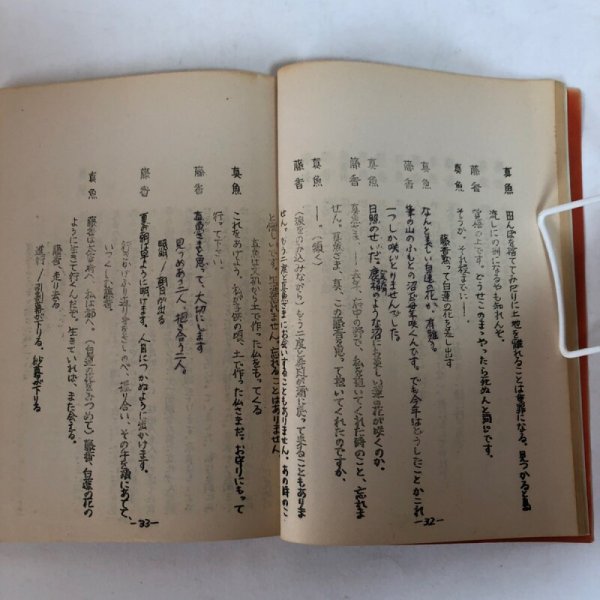 真魚　田んぼを捨ててみだりに土地を離れることは重罪になる。見つかると島
流しの刑になるやも知れんぞ。
藤香　覚悟の上です。どうせこのまゝやったら死ぬんと同じです。
真魚　そうか、それ程までに……。
藤香、黙って白蓮の花を差し出す
真魚　なんと美しい白蓮の花か、有難う。
藤香　筆の山のふもとの沼に毎年咲くんです。でも今年はどうしたことかこれ
一つしか咲いとりませんでした。
真魚　日照のせいだ。
藤香　真魚さま、――去年、
せん。真魚さま、真、この藤香を思って抱いてくれたのですか。
真魚　――。（頷く）
藤香　（涙をのみ込みながら）もう二度と
せん。もう二度と真魚さまにお会いすることもありません。あの時のこ
-32-
と嬉しいです。 忘れません。忘れることはありません
真魚は文机から土で作った仏を持ってくる
真魚　これをあげよう。私が子供の頃、土で作った仏さまだ。お守りにもって
行って下さい。
藤香　真魚さまと思って、大切にします
見つめあう二人、抱き合う二人。
暗題／朝日が出る
藤香　夏の朝は早ように明けます。人目につかぬように出かけます。
行きかけふり返り手をさしのべ、握り合い、その手を頬にあてて、
いつくしむ藤香。
真魚　藤香は 私は都へ。（白蓮の花をみつめて）藤香、白蓮の花の
ように生きて行くんだぞ。生きていれば、また会える。
藤香、走り去る
道行／引割幕が下りる。紗幕が下りる
-33-